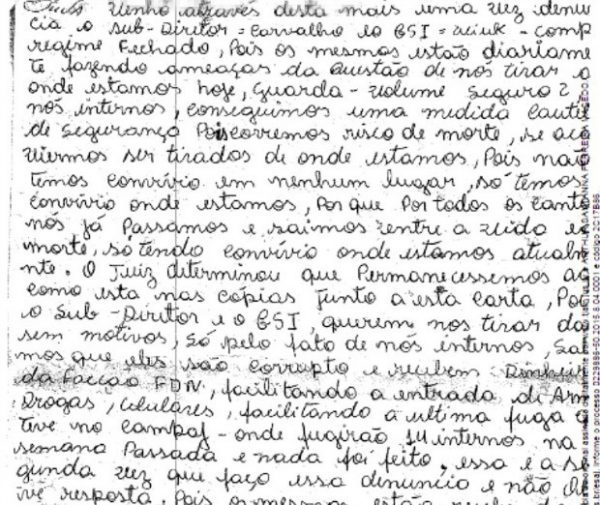 venho através desta mais uma vez denu
cia o sub-Diretor = carvalho e o GSI = - comp
regime Fechado, Pois os mesmos estão diariame
te fazendo ameaças da Questão de nos tirar
onde estamos hoje, Guarda-volume Seguro 2
nós internos, conseguimos uma medida caute
de segurança Pois corremos risco de morte, se aco
viermos ser tirados de onde estamos, Pois não
temos convívio em nenhum lugar, só temos
convívio onde estamos, Por que Por todos os canto
nós já Passamos e saimos entre a vida e
morte, só tendo convívio onde estamos atualm
nte. O Juiz determinou que Permanecessemos
como esta nas cópias junto a esta carta, Poi
o Sub-Diretor e o GSI, querem nos tirar da
sem motivos, só pelo fato de nós internos sa
mos que eles são corrupto e recebem Dinheir
da Facção FDN, facilitando a entrada di Arm
Drogas, celulares, facilitando a ultima fuga
tive no compaj - onde fugirão internos na
semana Passada e nada foi feito, essa e a se
gunda vez que faço essa denuncia e não
ive resposta. Pois os mesmos estão